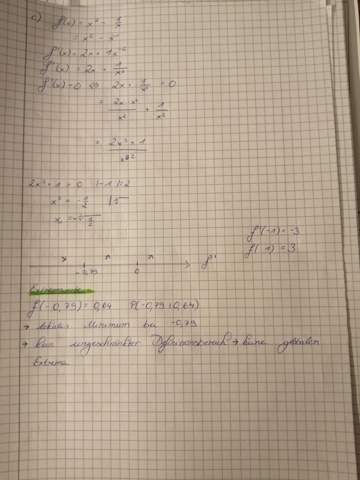 c) f(x) = x² - 1/x
= x² - x⁻¹
f'(x) = 2x + 1x⁻²
f'(x) = 2x + 1/x²
f'(x) = 0 ⇔ 2x + 1/x² = 0
= 2x · x²/x² + 1/x²
= 2x³ + 1/x²
2x³ + 1 = 0 |-1 |:2
x³ = -1/2 |∛
f'(-1) = -3
f'(1) = 3
-0,79 0 f'
Extremum
f(-0,79) = 0,64 P(-0,79 | 0,64)
→ lokales Minimum bei -0,79
→ kein eingeschränkter Definitionsbereich → keine globalen
Extrema